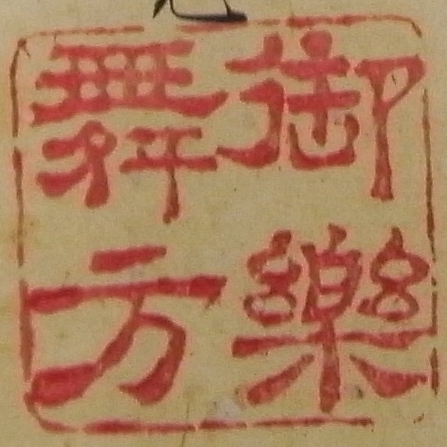 御樂
舞方